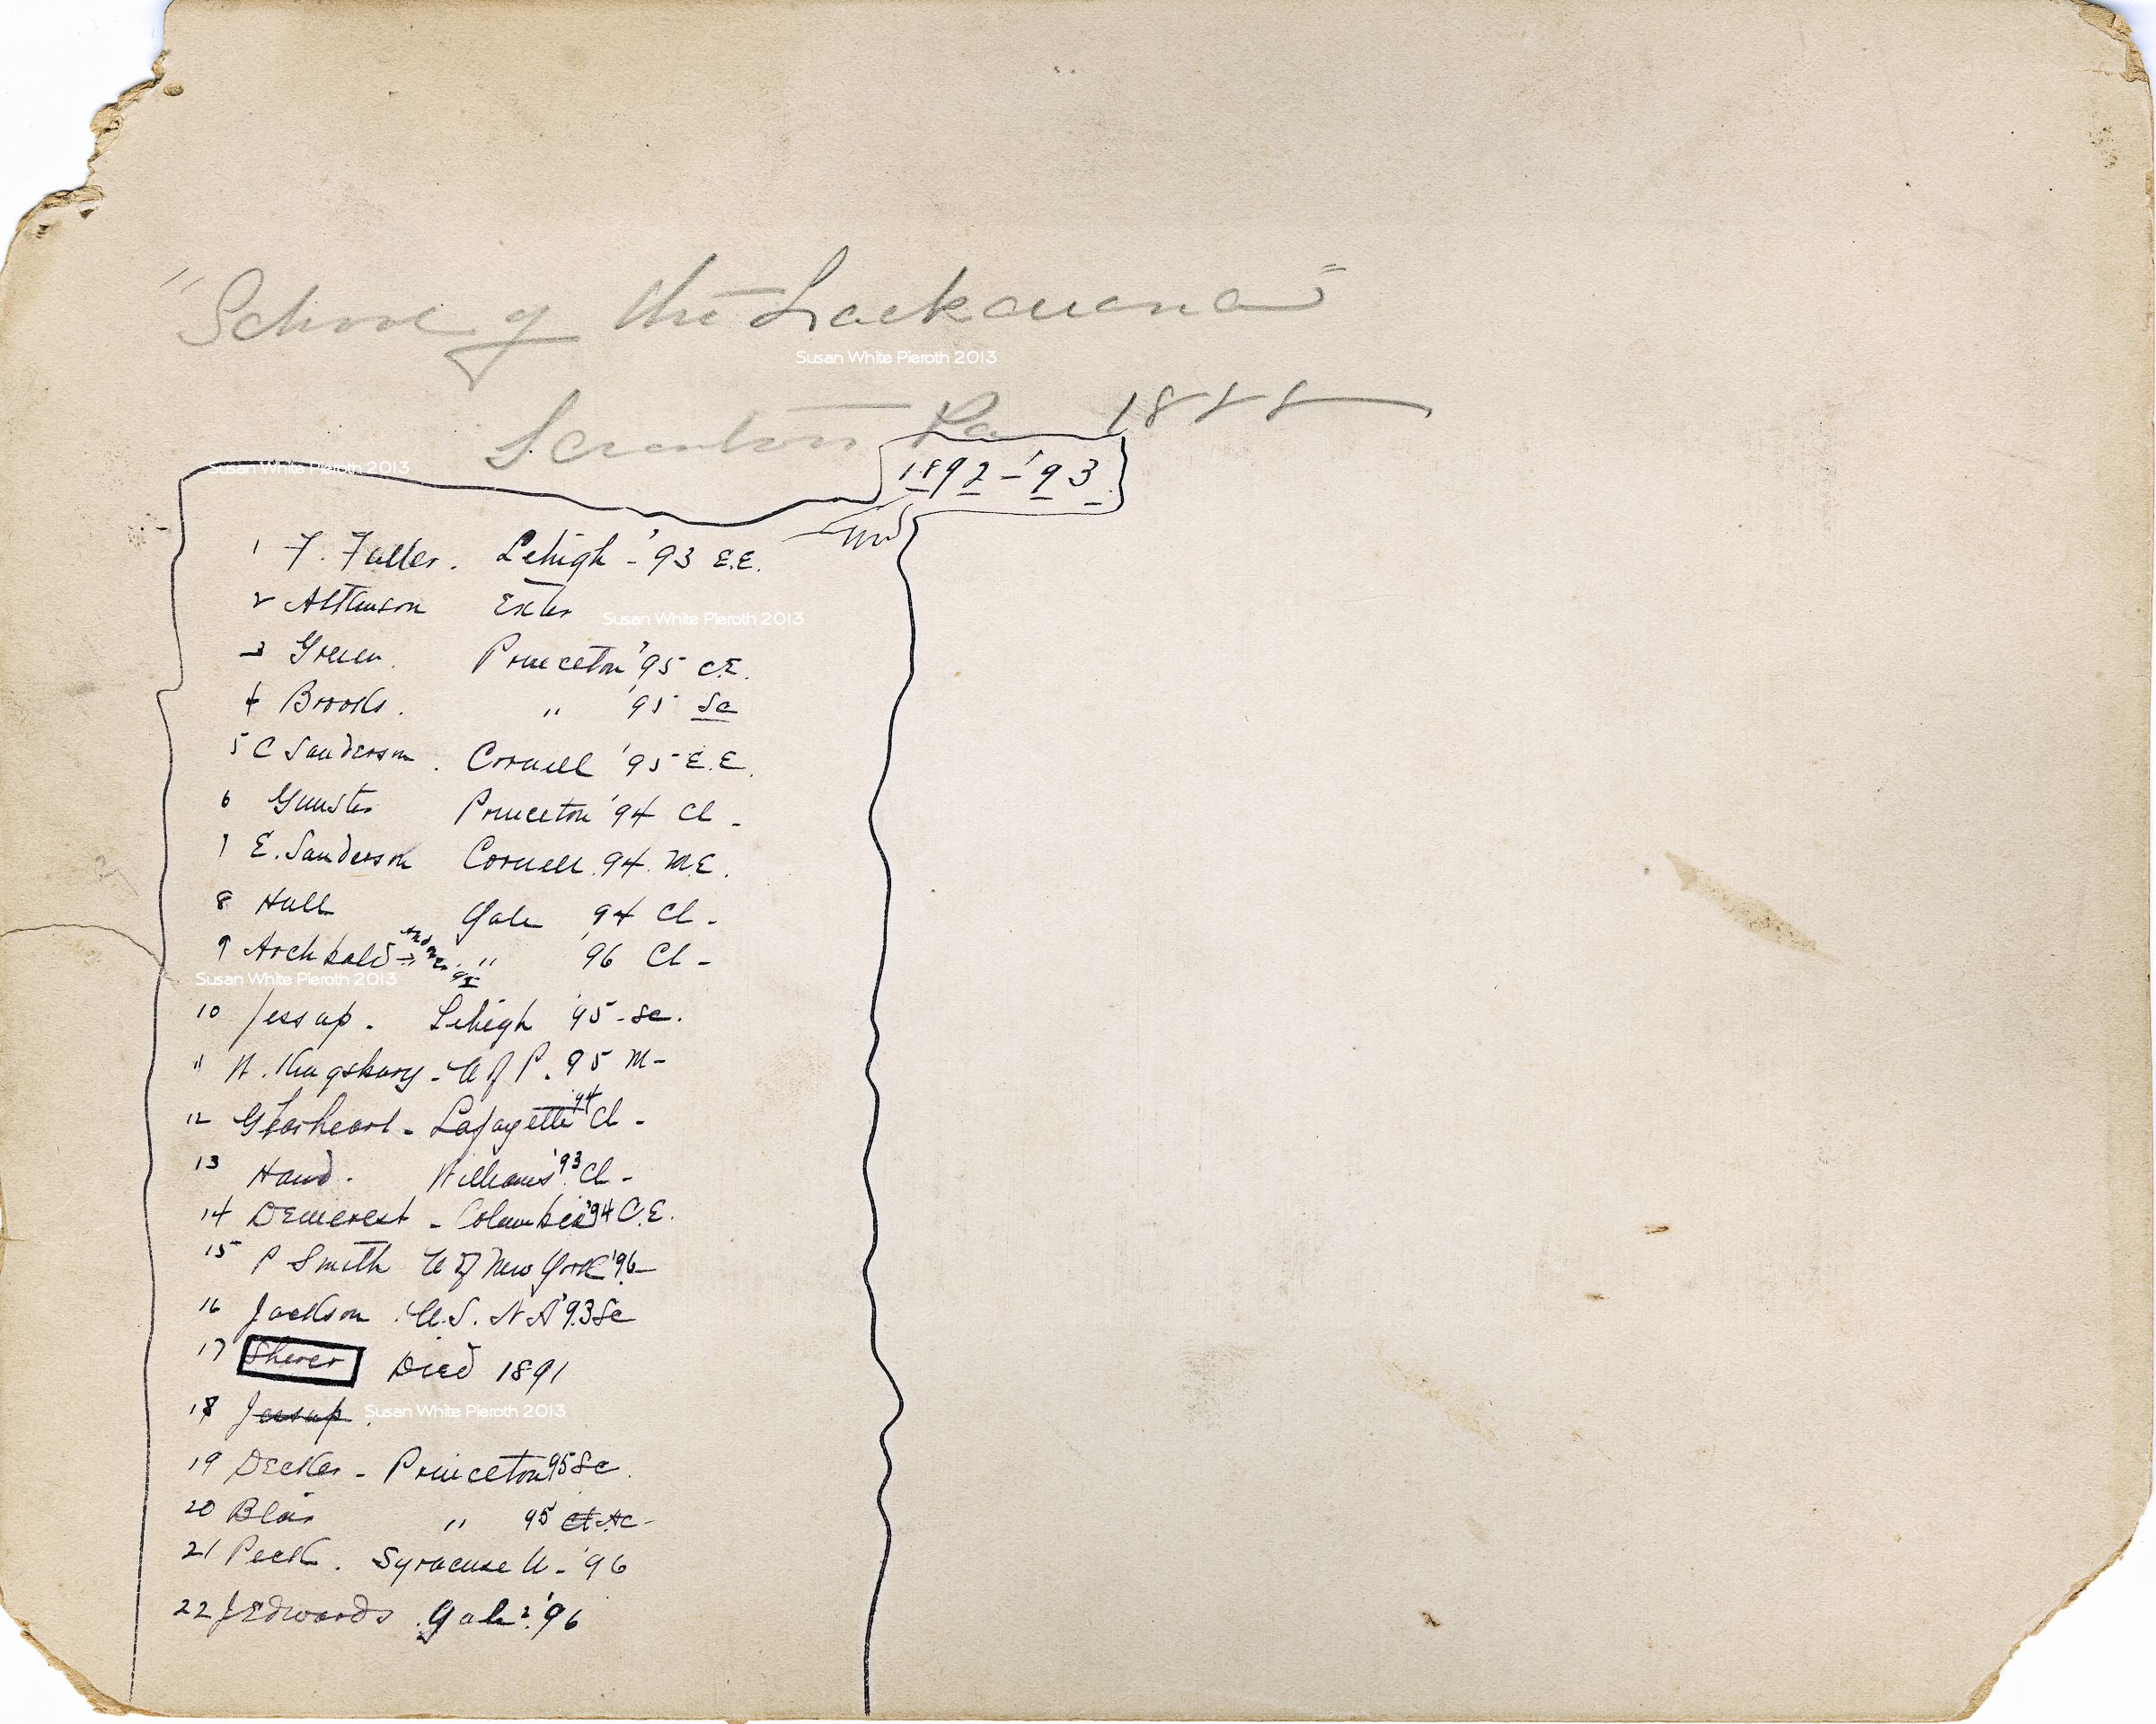 "School of the Lackawana"
Susan White Pieroth 2013
Scranton Pa 1888
Susan White Pieroth 2013
1892-'93
1 F. Fuller. Lehigh - '93 E.E.
2 Atkinson Exter
Susan White Pieroth 2013
3 Green. Princeton '95 C.E.
4 Brooks. " '95 Sc
5 C Sanderson. Cornell '95 E.E.
6 Gunster Princeton '94 Cl -
7 E. Sanderson Cornell. 94. M.E.
8 Hull Yale 94 Cl -
9 Archbald → Andover " '96 Cl -
Susan White Pieroth 2013
10 Jessup. Lehigh '95 - Sc.
11 W. Kingsbury - U of P. 95 M -
12 Gearheart - Lafayette '94 Cl -
13 Hand. Williams '93 Cl -
14 Demerest - Columbia '94 C.E.
15 P Smith U of New York '96
16 Jackson. U.S. N A '93 Sc
17 Sherer Died 1891
18 Jessup.
Susan White Pieroth 2013
19 Decker - Princeton 95 Sc.
20 Blair " 95 Cl Ac -
21 Peck. Syracuse U - '96
22 J Edwards Yale '96